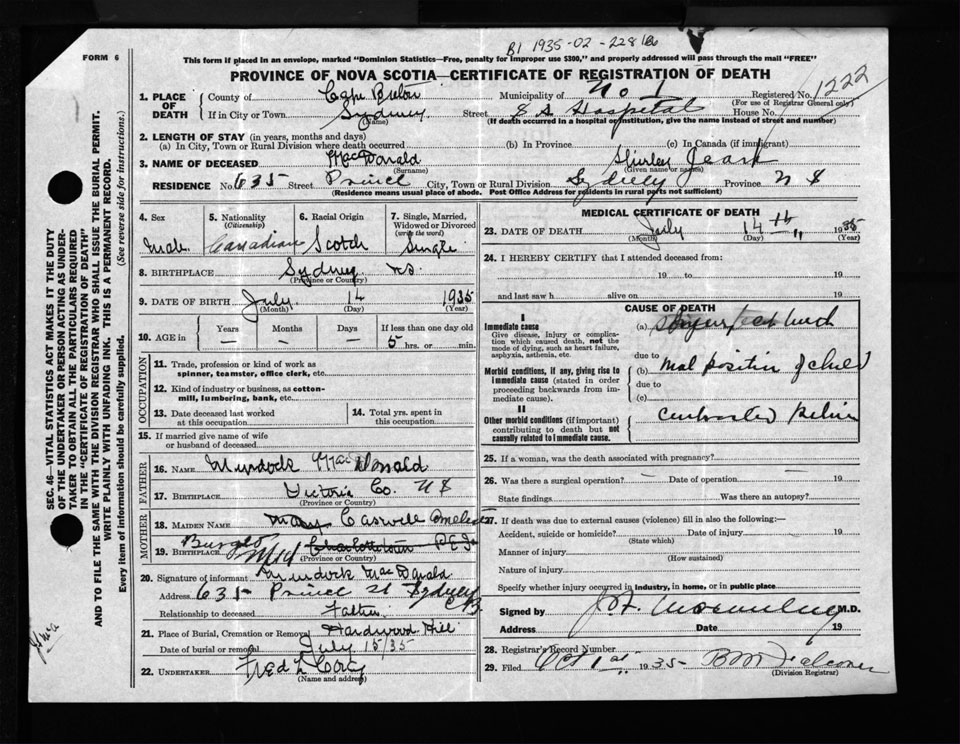 B1 1935-02-22816
FORM 6
This form if placed in an envelope, marked "Dominion Statistics—Free, penalty for improper use $300," and properly addressed will pass through the mail "FREE"
PROVINCE OF NOVA SCOTIA—CERTIFICATE OF REGISTRATION OF DEATH
1. PLACE OF DEATH
County of Cape Breton Municipality of No 1 Registered No. 1222
(For use of Registrar General only)
If in City or Town Sydney Street Hospital House No.
(Name) (If death occurred in a hospital or institution, give the name instead of street and number)
2. LENGTH OF STAY (in years, months and days)
(a) In City, Town or Rural Division where death occurred (b) In Province (c) In Canada (if immigrant)
3. NAME OF DECEASED MacDonald Shirley Jean
(Surname) (Given name or names)
RESIDENCE No. 635 Street Prince City, Town or Rural Division Sydney Province N S
(Residence means usual place of abode. Post Office Address for residents in rural parts not sufficient)
4. Sex
5. Nationality (Citizenship) Canadian
6. Racial Origin Scotch
7. Single, Married, Widowed or Divorced (write the word) Single
8. BIRTHPLACE Sydney NS
(Province or Country)
9. DATE OF BIRTH July 14 1935
(Month) (Day) (Year)
10. AGE in Years — Months — Days — If less than one day old 5 hrs. or min.
OCCUPATION
11. Trade, profession or kind of work as spinner, teamster, office clerk, etc.
12. Kind of industry or business, as cotton-mill, lumbering, bank, etc.
13. Date deceased last worked at this occupation
14. Total yrs. spent in this occupation
15. If married give name of wife or husband of deceased
FATHER
16. NAME Murdock MacDonald
17. BIRTHPLACE Victoria Co. N S
(Province or Country)
MOTHER
18. MAIDEN NAME Mary Caswell
19. BIRTHPLACE Charlottetown P E I
(Province or Country)
20. Signature of informant Murdock MacDonald
Address 635 Prince St Sydney CB
Relationship to deceased Father
21. Place of Burial, Cremation or Removal Hardwood Hill
Date of burial or removal July 15/35
22. UNDERTAKER Fred L Cory
(Name and address)
MEDICAL CERTIFICATE OF DEATH
23. DATE OF DEATH July 14th 1935
(Month) (Day) (Year)
24. I HEREBY CERTIFY that I attended deceased from:
19 to 19
and last saw h alive on 19
CAUSE OF DEATH
I
Immediate cause
Give disease, injury or complication which caused death, not the mode of dying, such as heart failure, asphyxia, asthenia, etc.
(a) birth
due to
Morbid conditions, if any, giving rise to immediate cause (stated in order proceeding backwards from immediate cause)
(b) mal position of child
due to
(c)
II
Other morbid conditions (if important) contributing to death but not causally related to immediate cause.
contracted pelvis
25. If a woman, was the death associated with pregnancy?
26. Was there a surgical operation? — Date of operation 19
State findings Was there an autopsy?
27. If death was due to external causes (violence) fill in also the following:—
Accident, suicide or homicide? Date of injury 19
(State which)
Manner of injury
(How sustained)
Nature of injury
Specify whether injury occurred in industry, in home, or in public place
Signed by M.D.
Address Date 19
28. Registrar's Record Number
29. Filed Oct 1st 1935
(Division Registrar)
SEC. 46—VITAL STATISTICS ACT MAKES IT THE DUTY
OF THE UNDERTAKER OR PERSON ACTING AS UNDER-
TAKER TO OBTAIN ALL THE PARTICULARS REQUIRED
IN THE "CERTIFICATE OF REGISTRATION OF DEATH"
AND TO FILE THE SAME WITH THE DIVISION REGISTRAR WHO SHALL ISSUE THE BURIAL PERMIT.
WRITE PLAINLY WITH UNFADING INK. THIS IS A PERMANENT RECORD.
Every item of information should be carefully supplied. (See reverse side for instructions.)